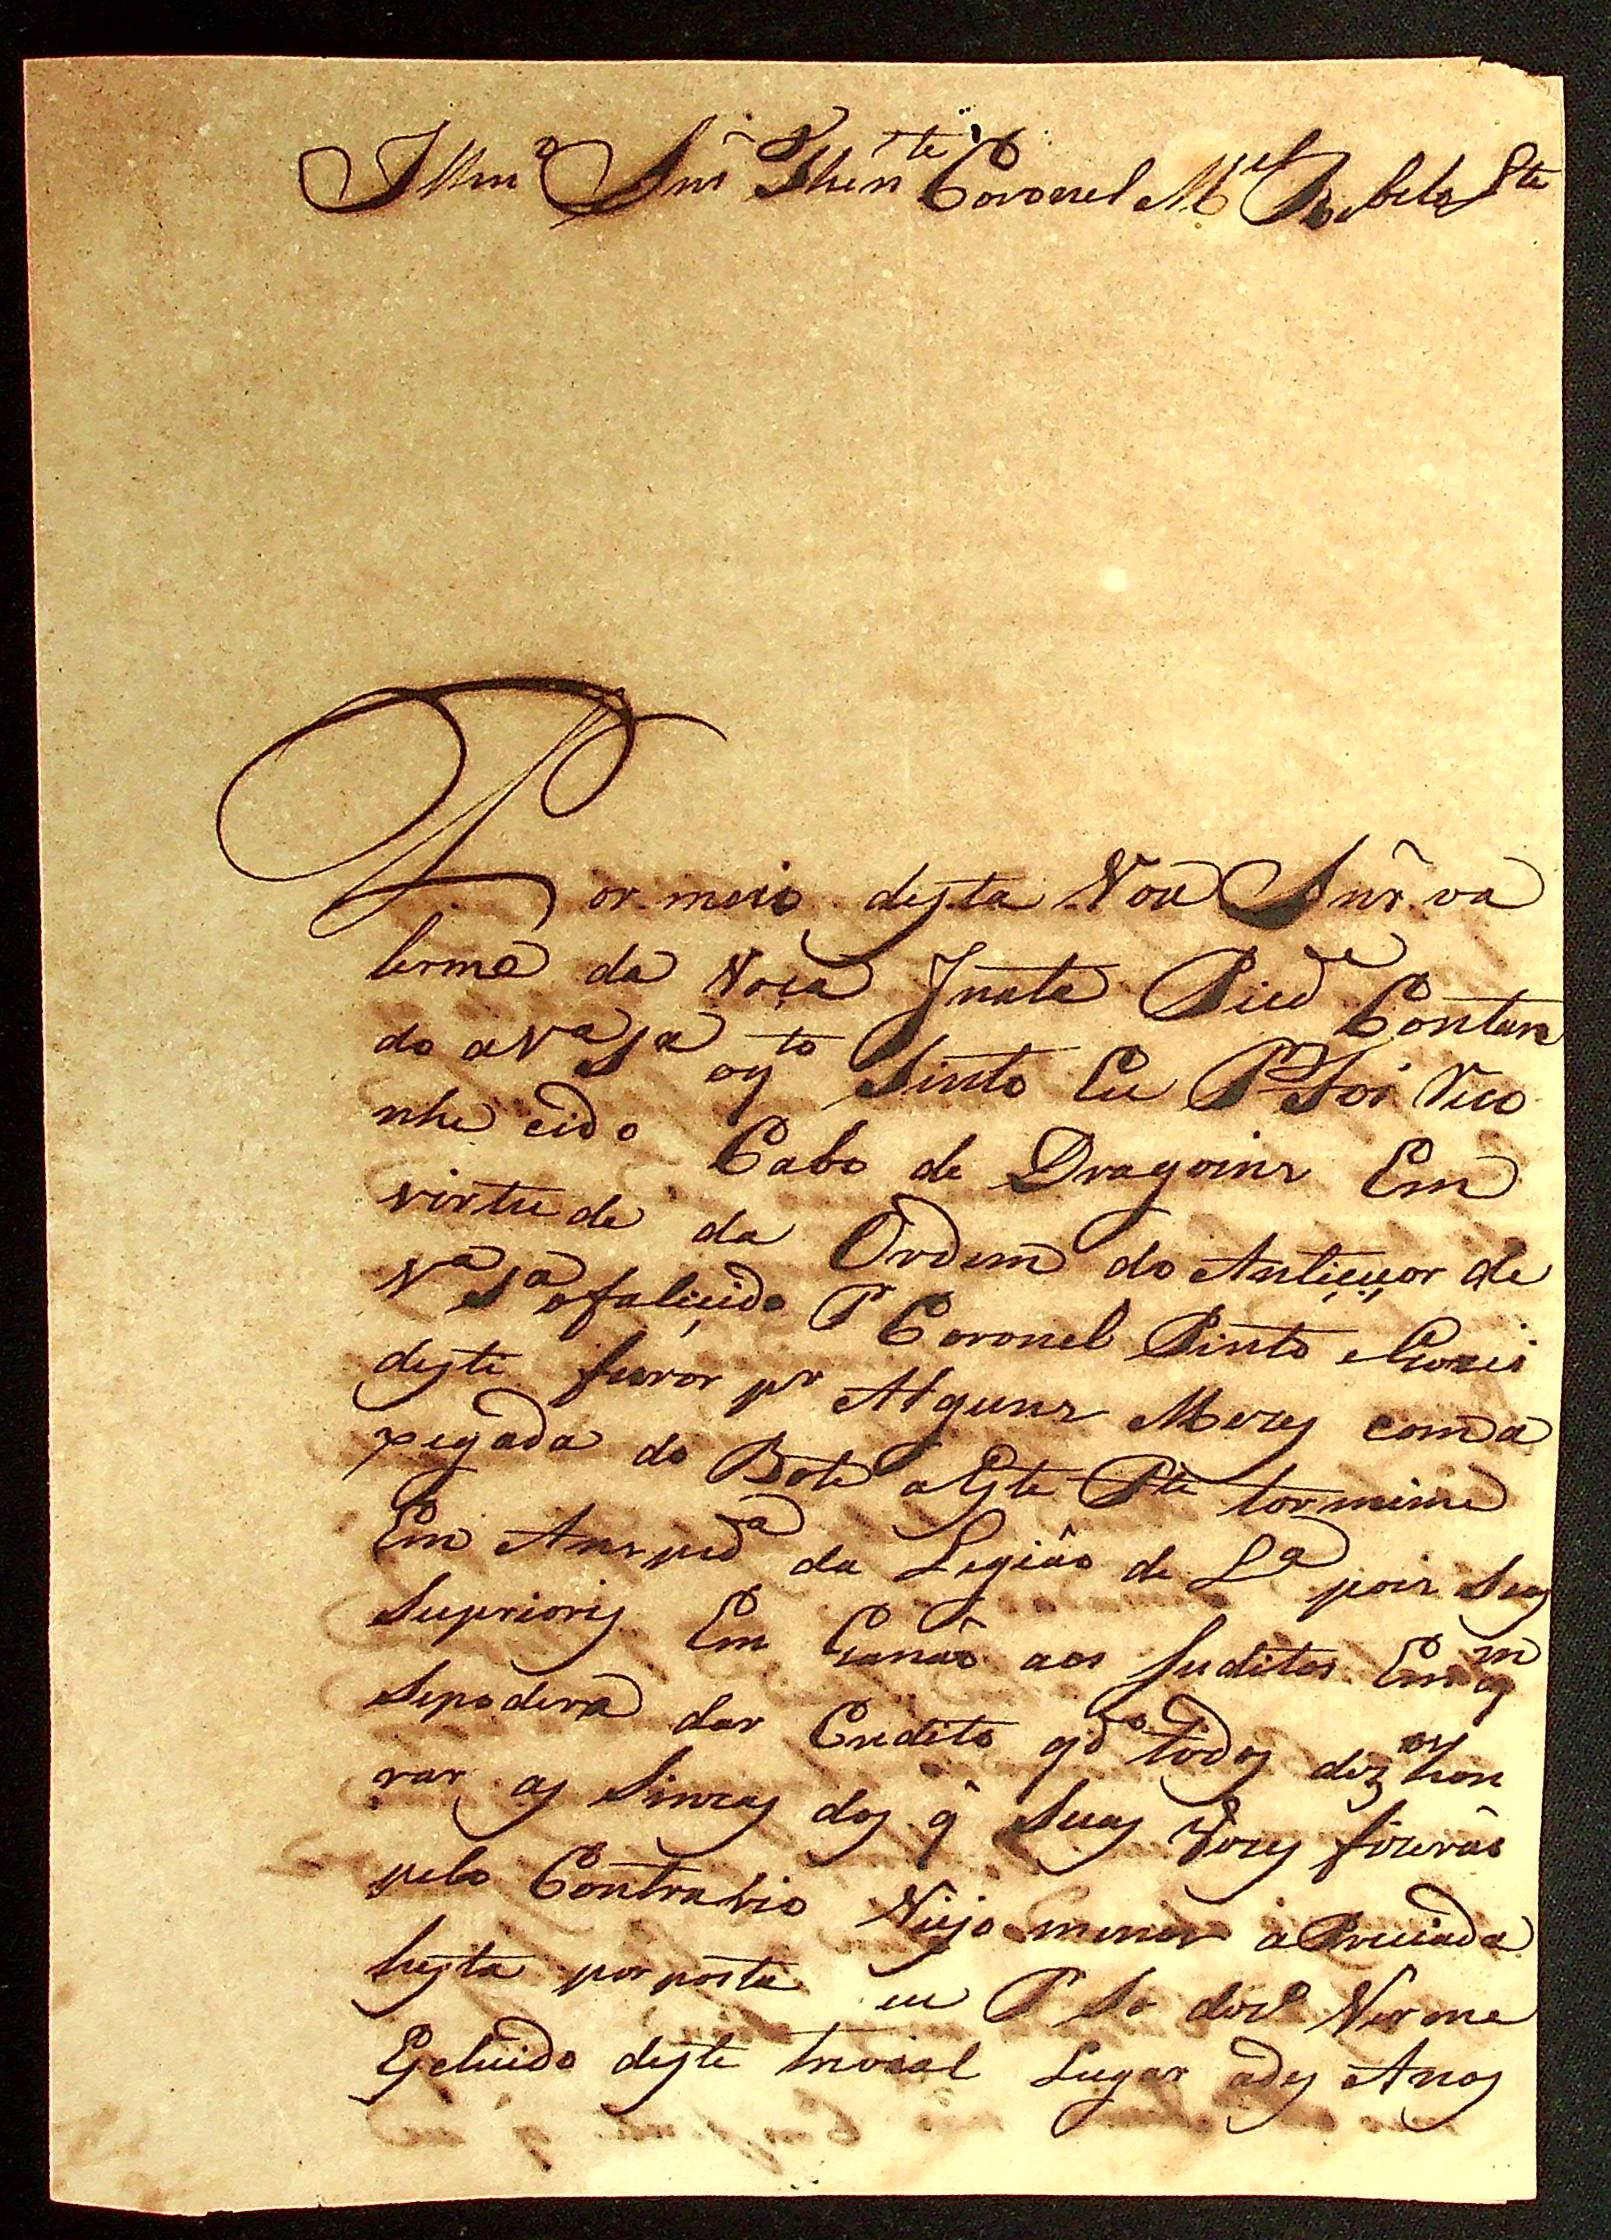 Illmo Snr Then te Coronel Mel Rebelo
Por meio desta Vou Snr va
lerme da Noça Inata Pied e Contan
do a Va Sa o q to Sinto Eu P. Foi Reco
nhe cido Cabo de Dragoins Em
virtude da Ordem do Antiçeçor de
Va Sa o faliçido Coronel Pinto e Guozei
deste favor pr Alguns Mezes com a
xegada do Bote a Este Pte tormime
Em Anspeda da Legião de La pois Seus
Suprioris Em Ganão aos Suditos Em
Sepodera dar Credito qdo todos dez hon
rar as Sinzas dos q̃ Suas Vozes fizerão
pelo Contrario Vejo menos a Preciada
hesta por posta eu P So dozo Verme
Escluido deste Trosal Lugar a des Anos